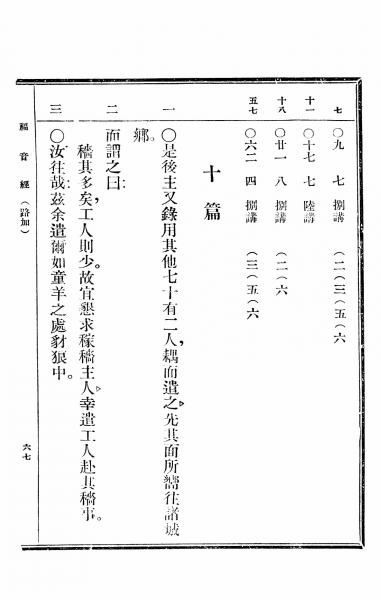 七 〇九 七 捌講 (二(三(五(六
十一 〇十七 七 陸講
十八 〇廿一 八 捌講 (二(六
五七 〇六二 四 捌講 (三(五(六
十篇
一 〇是後主又錄用其他七十有二人,耦而遣之,先其面所嚮往諸城
鄉。
二 而謂之曰:
穡其多矣,工人則少。故宜懇求稼穡主人,幸遣工人赴其穡事。
三 〇汝往哉:茲余遣爾如童羊之處豺狼中。
福音經(路加) 六七